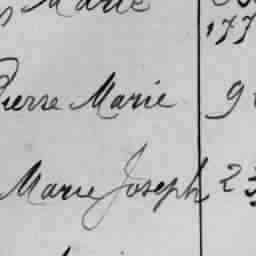 Marie
177
Pierre Marie 9
Marie Joseph 23